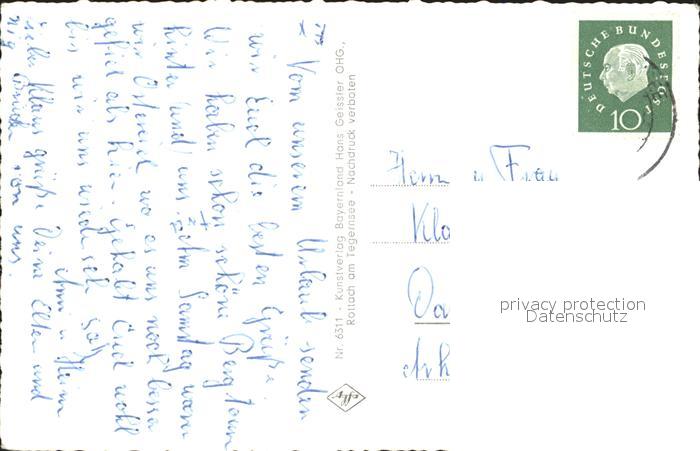 Vom unserem Urlaub senden
wir Euch die besten Grüße.
Wir haben schon schöne Berg touren
hinter uns. Am Samstag waren
wir wo es uns noch besser
gefiel als hier. Gehabt Euch wohl
bis wir uns wieder sehn
u. Heini
Klaus grüße Deine Eltern und
von uns
Nr. 6311 - Kunstverlag Bayernland Hans Geissler OHG.,
Rottach am Tegernsee - Nachdruck verboten
DEUTSCHE BUNDESPOST
10
Herrn u Frau
Klo
Da
privacy protection
Datenschutz